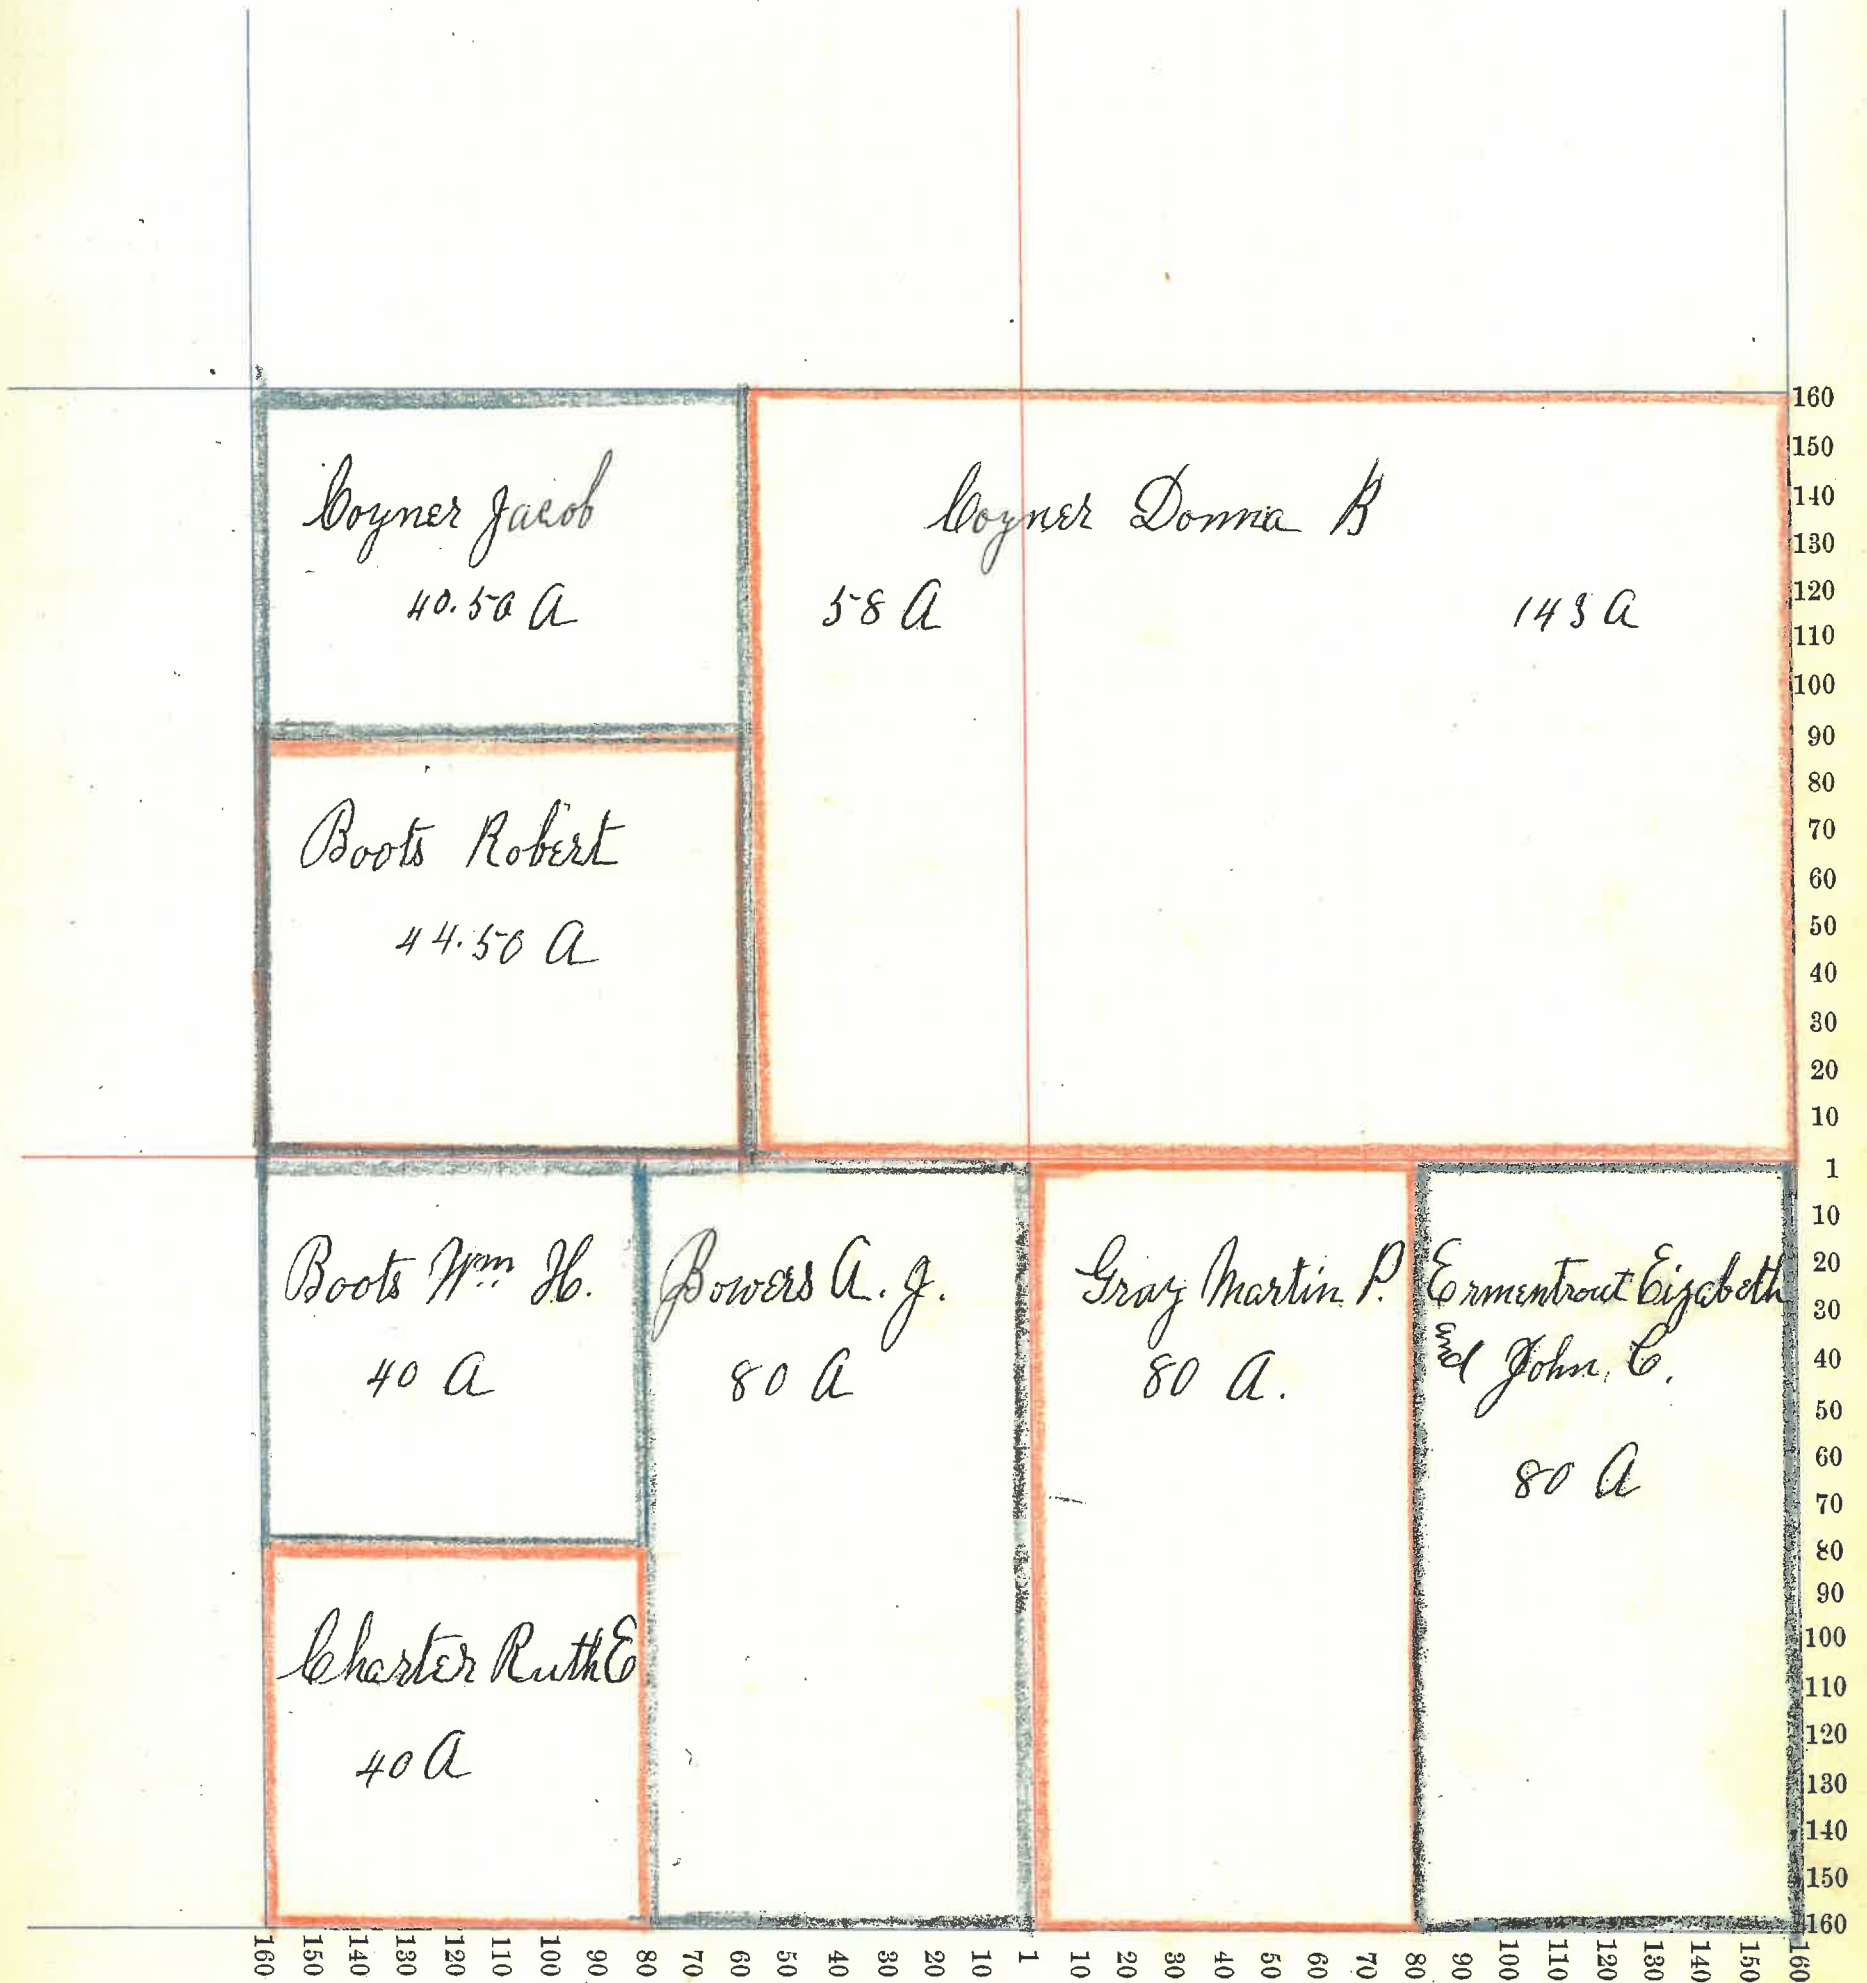 Coyner Jacob
40.50 A
Coyner Donna B
58 A
143 A
Boots Robert
44.50 A
Boots Wm H.
40 A
Bowers A. J.
80 A
Gray Martin P.
80 A.
Ermentrout Eizabeth
and John, C.
80 A
Charter Ruth E
40 A
160
150
140
130
120
110
100
90
80
70
60
50
40
30
20
10
1
10
20
30
40
50
60
70
80
90
100
110
120
130
140
150
160
160 150 140 130 120 110 100 90 80 70 60 50 40 30 20 10 1 10 20 30 40 50 60 70 80 90 100 110 120 130 140 150 160